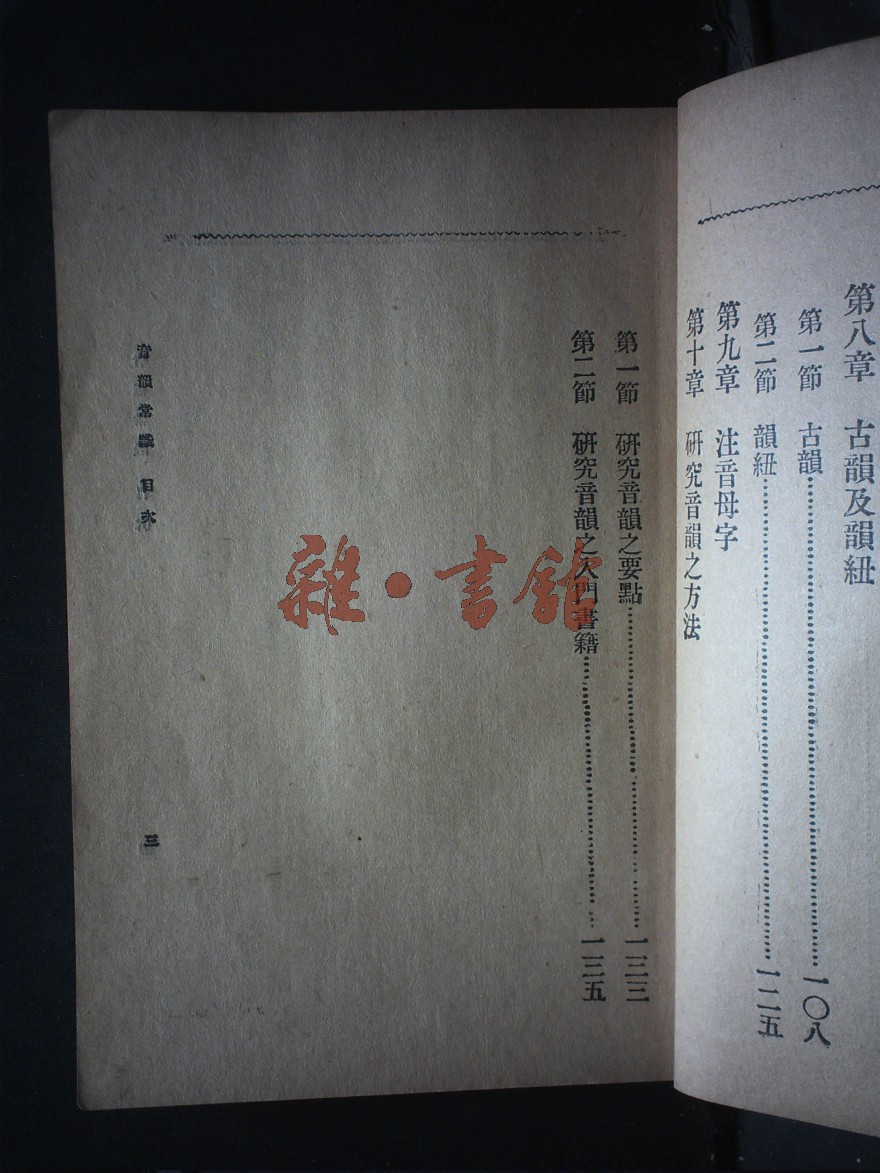 第八章　古韻及韻紐
第一節　古韻……………………一〇八
第二節　韻紐……………………一二五
第九章　注音母字
第十章　研究音韻之方法
第一節　研究音韻之要點……………………一三三
第二節　研究音韻之入門書籍……………………一三五
音韻常識　目次　三
雜·書館